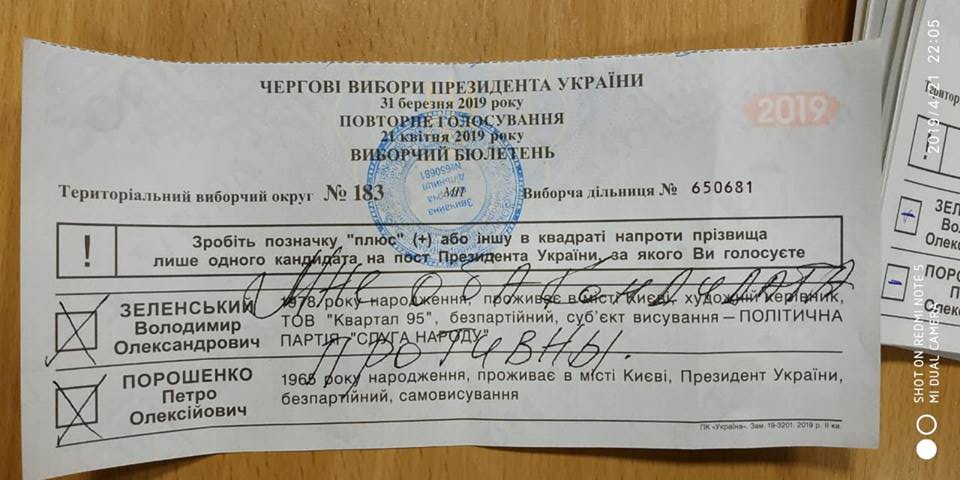 ЧЕРГОВІ ВИБОРИ ПРЕЗИДЕНТА УКРАЇНИ
31 березня 2019 року
ПОВТОРНЕ ГОЛОСУВАННЯ
21 квітня 2019 року
ВИБОРЧИЙ БЮЛЕТЕНЬ
2019
Територіальний виборчий округ № 183
МП
Виборча дільниця № 650681
Звичайна виборча дільниця №650681
! Зробіть позначку "плюс" (+) або іншу в квадраті напроти прізвища
лише одного кандидата на пост Президента України, за якого Ви голосуєте
МНЕ ОБА КАНДИДАТА
ПРОТИВНЫ.
ЗЕЛЕНСЬКИЙ
Володимир
Олександрович
1978 року народження, проживає в місті Києві, художній керівник,
ТОВ "Квартал 95", безпартійний, суб'єкт висування – ПОЛІТИЧНА
ПАРТІЯ "СЛУГА НАРОДУ"
ПОРОШЕНКО
Петро
Олексійович
1965 року народження, проживає в місті Києві, Президент України,
безпартійний, самовисування
ПК «Україна». Зам. 19-3201. 2019 р. ІІ кв.
SHOT ON REDMI NOTE 5
MI DUAL CAMERA
2019/4/21 22:05